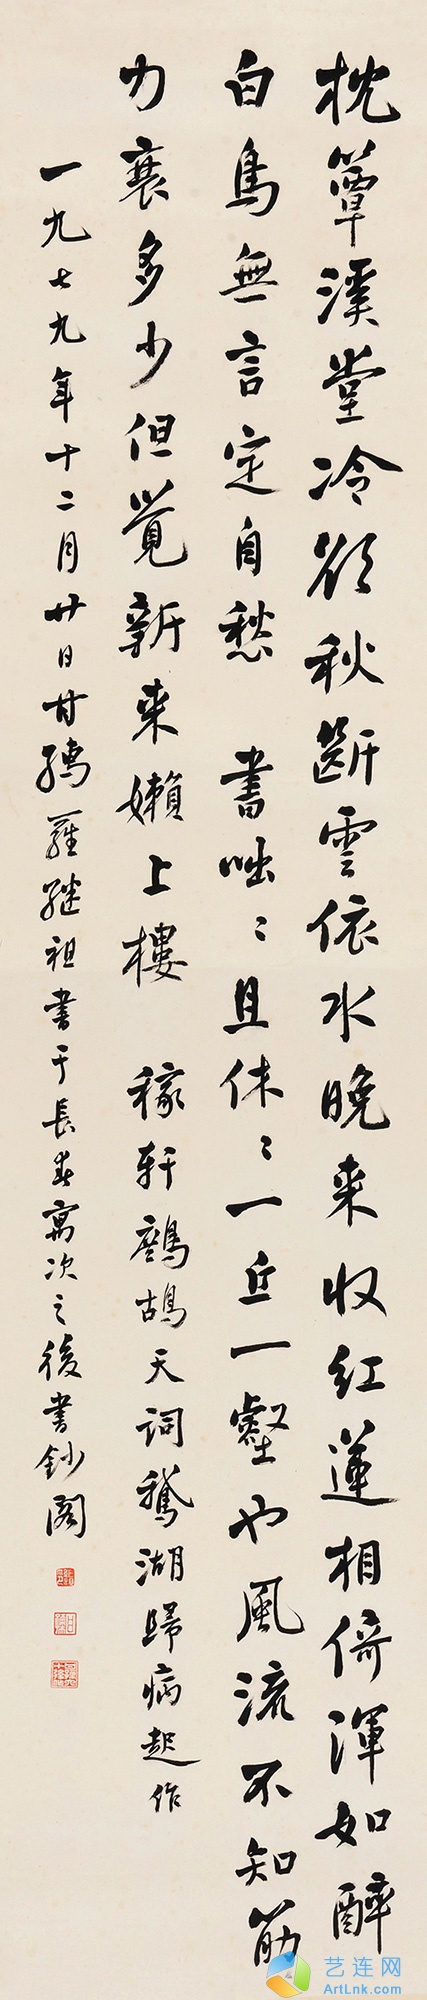 枕簟溪堂冷欲秋斷雲依水晚来收红蓮相倚渾如醉
白鳥無言定自愁　書咄〻且休〻一丘一壑也風流不知筋
力衰多少但覺新来嬾上樓　稼軒鷓鴣天詞鵝湖歸病起作
一九七九年十二月廿日甘孺羅繼祖書于長春寓次之後書鈔閣
艺连网
ArtLnk.com